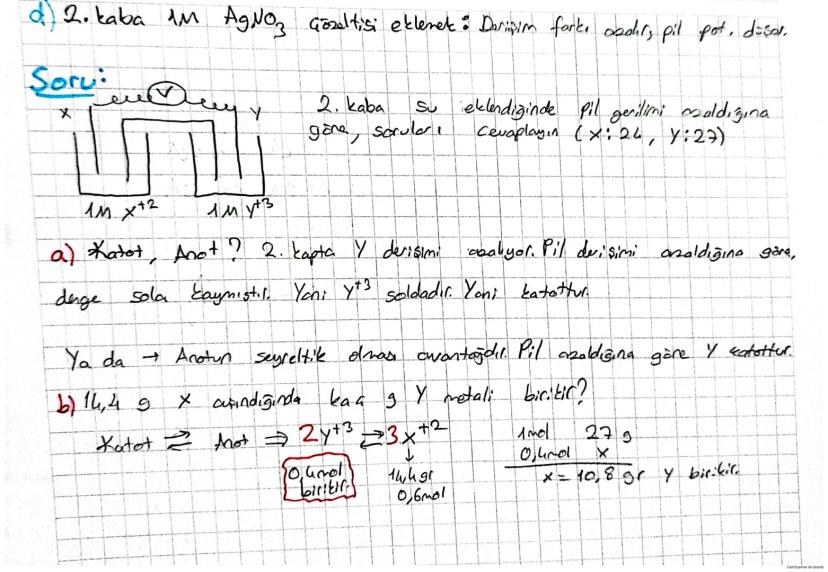 d) 2. kaba 1M AgNO3 çözeltisi eklemek: Derişim farkı azalır, pil pot. düşer.
Soru:
V
X
Y
1M X+2
1M Y+3
2. kaba su eklendiğinde pil gerilimi azaldığına
göre, soruları cevaplayın (X:24, Y:27)
a) Katot, Anot? 2. kapta Y derişimi azalıyor. Pil derişimi azaldığına göre,
denge sola kaymıştır. Yani Y+3 soldadır. Yani katottur.
Ya da → Anotun seyreltik olması avantajdır. Pil azaldığına göre Y katottur.
b) 14,4 g X aşındığında kaç g Y metali birikir?
Katot ⇌ Anot ⇒ 2Y+3 ⇌ 3X+2
↓
0,4mol
birikir.
14,4gr
0,6mol
1mol 27 g
0,4mol x
x = 10,8 gr Y birikir.
CamScanner ile tarandı